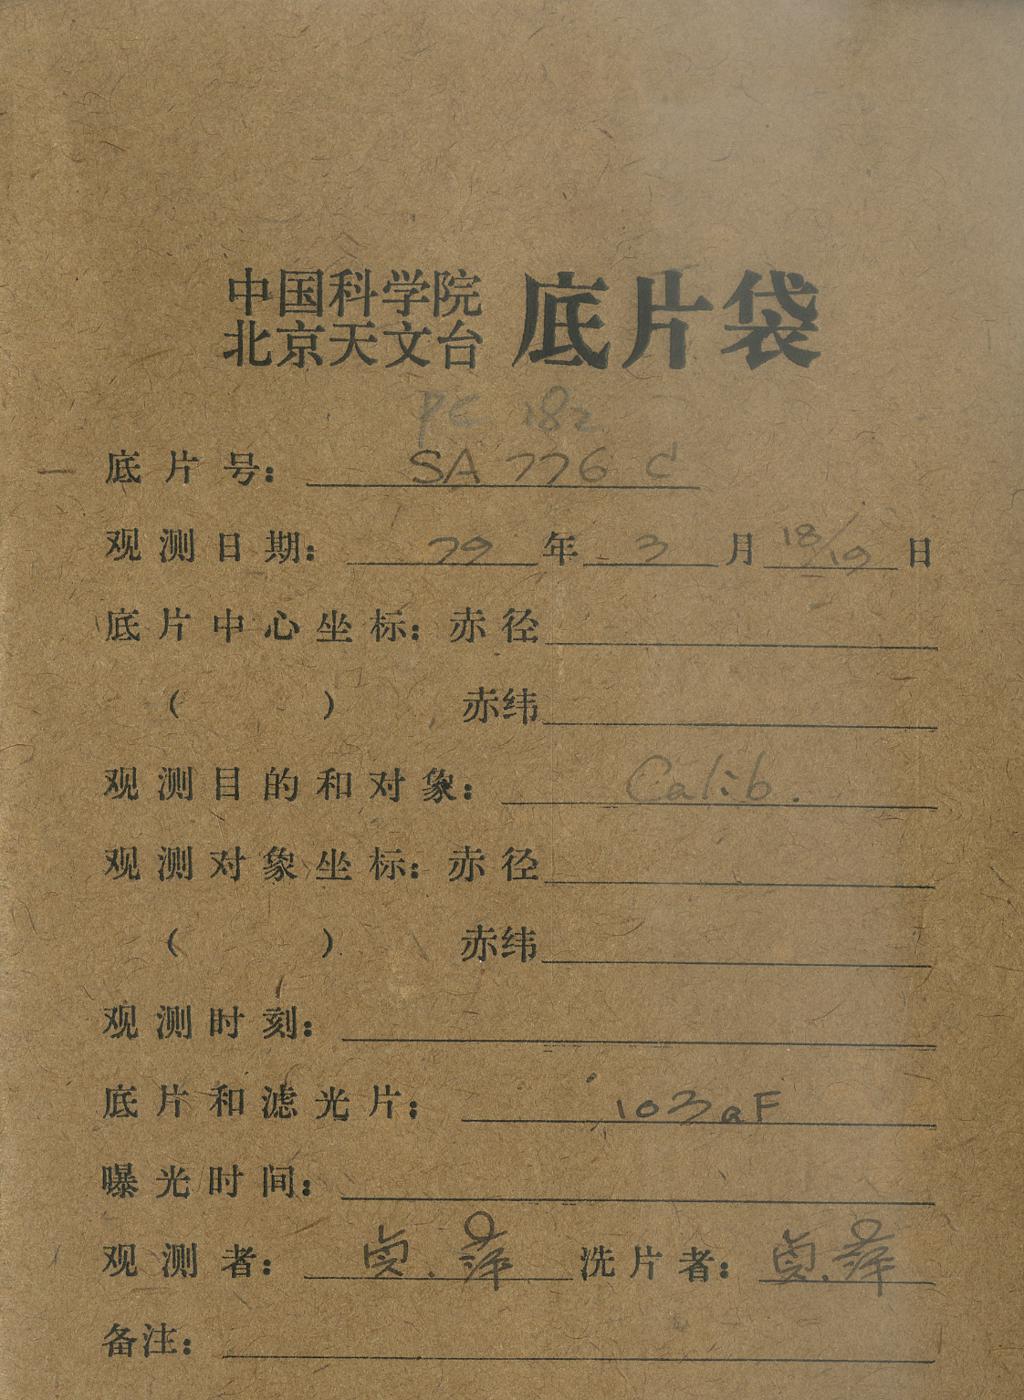 中国科学院
北京天文台
底片袋
PC 182
底片号： SA 776 d
观测日期： 79 年 3 月 18/19 日
底片中心坐标：赤径
（ ） 赤纬
观测目的和对象： Calib.
观测对象坐标：赤径
（ ） 赤纬
观测时刻：
底片和滤光片： 103aF
曝光时间：
观测者： 贞. 萍 洗片者： 贞. 萍
备注：